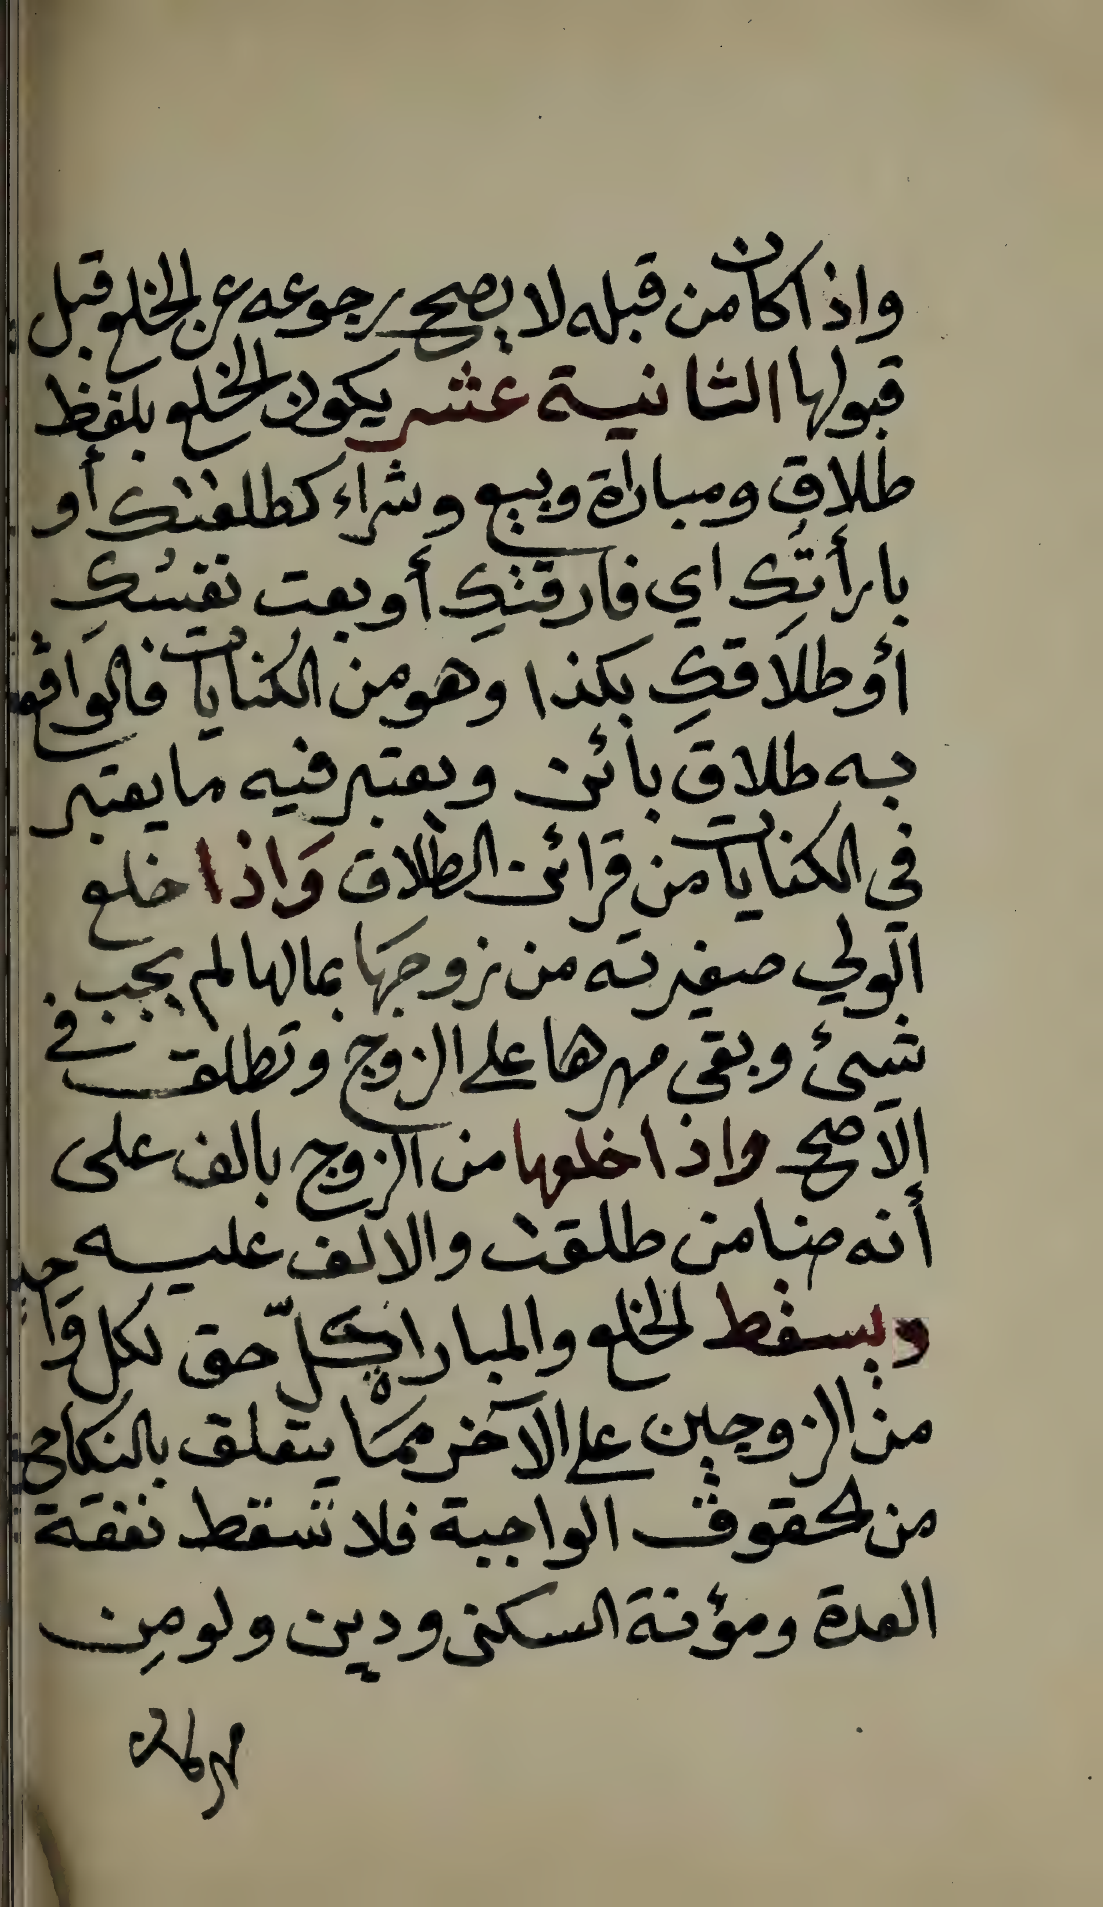 واذا كان من قبله لا يصح رجوعه عن الخلع قبل
قبولها الثانية عشر يكون الخلع بلفظ
طلاق ومبارأة وبيع وشراء كطلقتك أو
بارأتُكِ اي فارقتكِ أو بعت نفسُكِ
أو طلاقكِ بكذا وهو من الكنايات فالواقع
به طلاق بائن ويعتبر فيه ما يعتبر
في الكنايات من قرائن الطلاق وَاذا خلع
الولي صغيرته من زوجهَا بمالها لم يجب
شئ وبقى مهرها على الزوج وتطلق في
الاصح واذا خلعها من الزوج بالف على
أنه ضامن طلقت والالف عليه
ويسقط الخلع والمباراة كلّ حق لكل واحد
من الزوجين على الآخر ممَا يتعلق بالنكاح
من لحقوق الواجبة فلا تسقط نفقة
العدة ومؤنة السكنى ودين ولو من